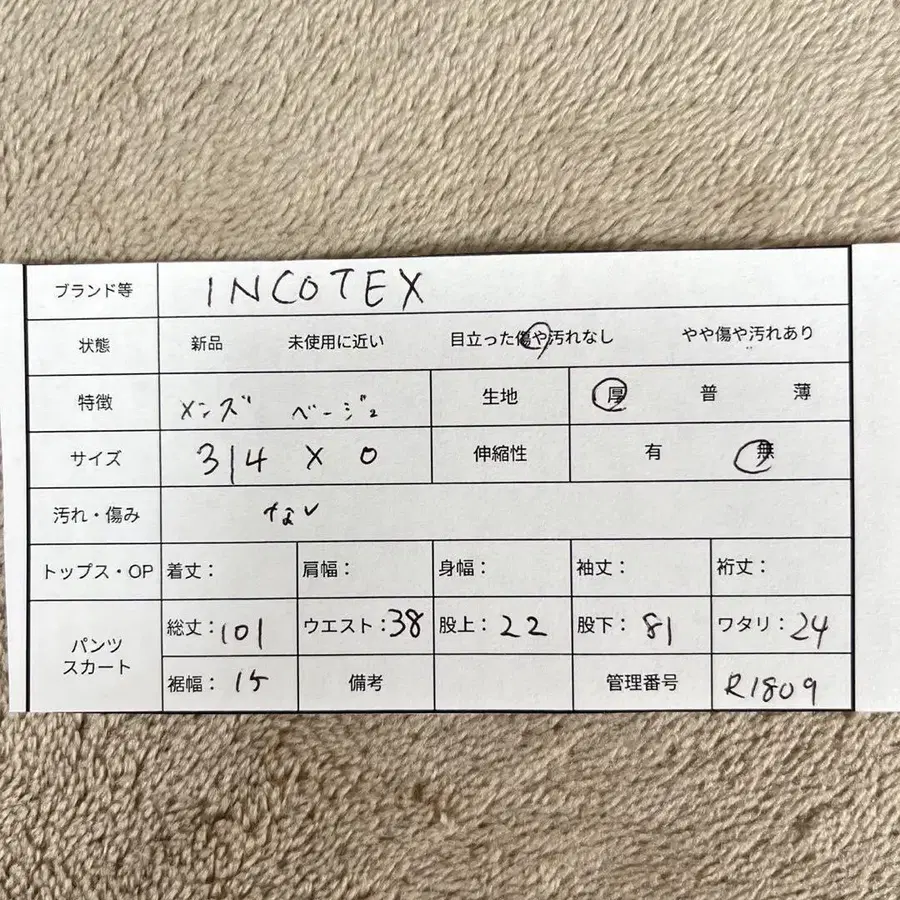 ブランド等 INCOTEX
状態 新品 未使用に近い 目立った傷や汚れなし やや傷や汚れあり
特徴 メンズ ベージュ 生地 厚 普 薄
サイズ 314 X 0 伸縮性 有 無
汚れ・傷み なし
トップス・OP 着丈: 肩幅: 身幅: 袖丈: 裄丈:
パンツ スカート 総丈:101 ウエスト:38 股上:22 股下:81 ワタリ:24
裾幅:15 備考 管理番号 R1809